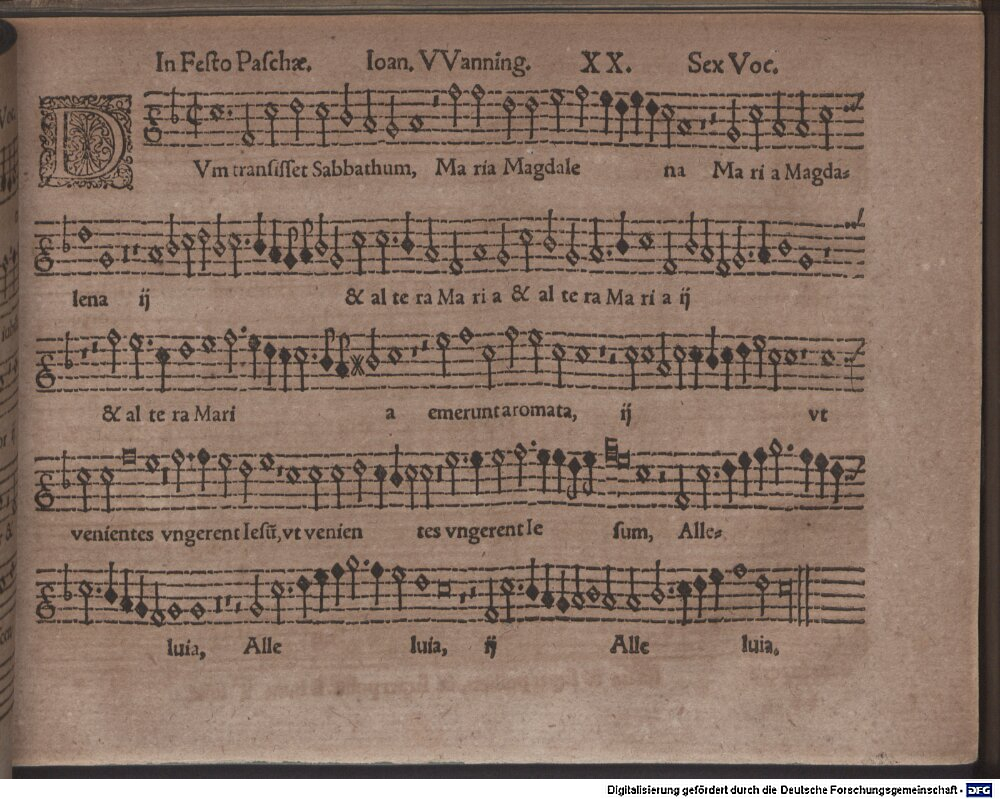 In Feſto Paſchæ. Ioan. VVanning. XX. Sex Voc.
D
Vm tranſiſſet Sabbathum, Ma ria Magdale na Ma ri a Magda-
lena ij & al te ra Ma ri a & al te ra Ma ri a ij
& al te ra Mari a emerunt aromata, ij vt
venientes vngerent Ieſu̅, vt venien tes vngerent Ie ſum, Alle-
luia, Alle luia, ij Alle luia.
Digitalisierung gefördert durch die Deutsche Forschungsgemeinschaft - DFG